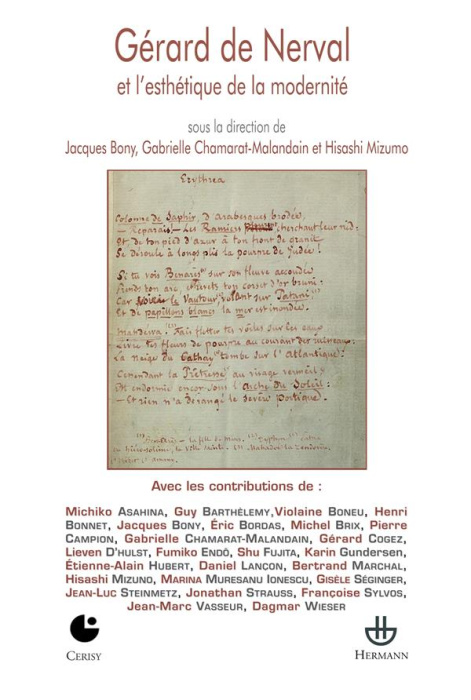 Gérard de Nerval
et l'esthétique de la modernité
sous la direction de
Jacques Bony, Gabrielle Chamarat-Malandain et Hisashi Mizumo
Erythrea
Colonne de Saphir, d'arabesques brodée,
– Reparais! – Les Ramiers cherchant leur nid:
Et de ton pied d'azur à ton front de granit
Se déroule à longs plis la pourpre de Judée!
Si tu vois Bénarès sur son fleuve accoudée
Prends ton arc, et revêts ton corset d'or bruni:
Car voici le Vautour, volant sur Patani,
Et de papillons blancs la mer est inondée.
Mahdewa! Fais flotter tes voiles sur les eaux
Livre tes fleurs de pourpre au courant des ruisseaux:
La neige du Cathay tombe sur l'Atlantique:
Cependant la Prêtresse au visage vermeil
Est endormie encor sous l'Arche du Soleil:
– Et rien n'a dérangé le sévère portique.
Avec les contributions de :
Michiko Asahina, Guy Barthèlemy,Violaine Boneu, Henri
Bonnet, Jacques Bony, Éric Bordas, Michel Brix, Pierre
Campion, Gabrielle Chamarat-Malandain, Gérard Cogez,
Lieven D'hulst, Fumiko Endô, Shu Fujita, Karin Gundersen,
Étienne-Alain Hubert, Daniel Lançon, Bertrand Marchal,
Hisashi Mizuno, Marina Muresanu Ionescu, Gisèle Séginger,
Jean-Luc Steinmetz, Jonathan Strauss, Françoise Sylvos,
Jean-Marc Vasseur, Dagmar Wieser
Cerisy
Hermann